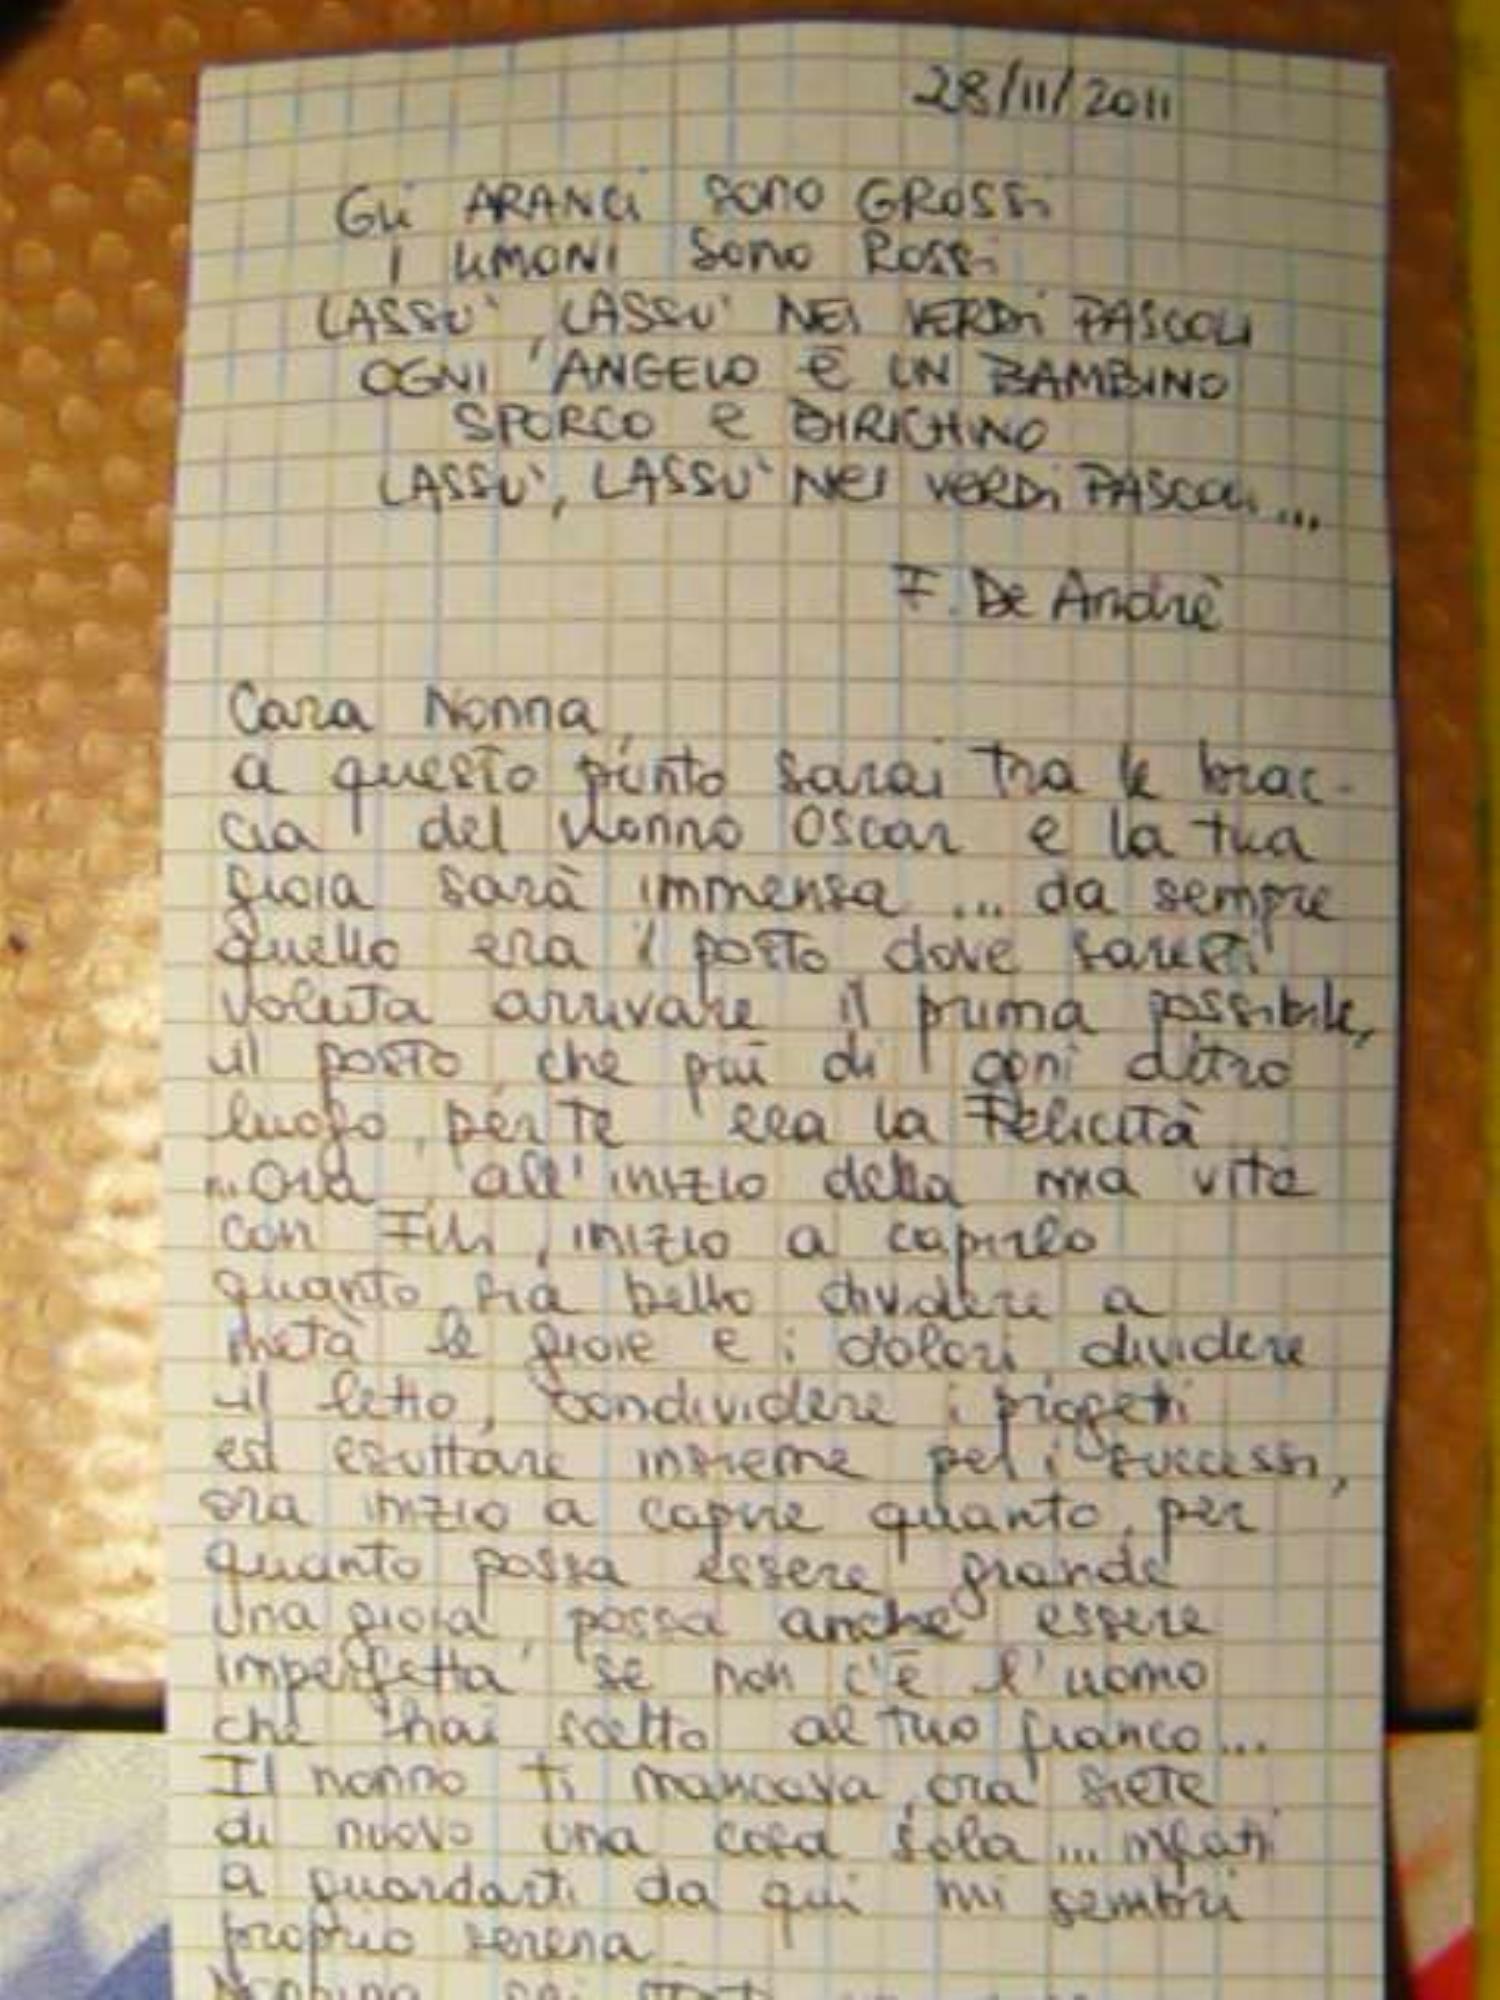 28/11/2011
Gli ARANCI sono GROSSi
i LIMONI Sono Rossi
LASSU', LASSU' NEI VERDi PASCOLI
OGNI ANGELO È UN BAMBINO
SPORCO e BIRICHINO
LASSU', LASSU' NEI VERDi PASCOLI...
F. De Andrè
Cara Nonna,
a questo punto sarai tra le brac-
cia del Nonno Oscar e la tua
gioia sarà immensa... da sempre
quello era il posto dove saresti
voluta arrivare il prima possibile,
il posto, che più di ogni altro
luogo, per te era la Felicità
... Ora, all'inizio della mia vita
con Fili, inizio a capirlo
quanto sia bello dividere a
metà le gioie e i dolori dividere
il letto, condividere i progetti
ed esultare insieme per i successi,
ora inizio a capire quanto, per
quanto possa essere grande
una gioia, possa anche essere
imperfetta se non c'è l'uomo
che hai scelto al tuo fianco...
Il nonno ti mancava, ora siete
di nuovo una cosa sola... infatti
a guardarti da qui mi sembri
proprio serena.
Nonnina sei